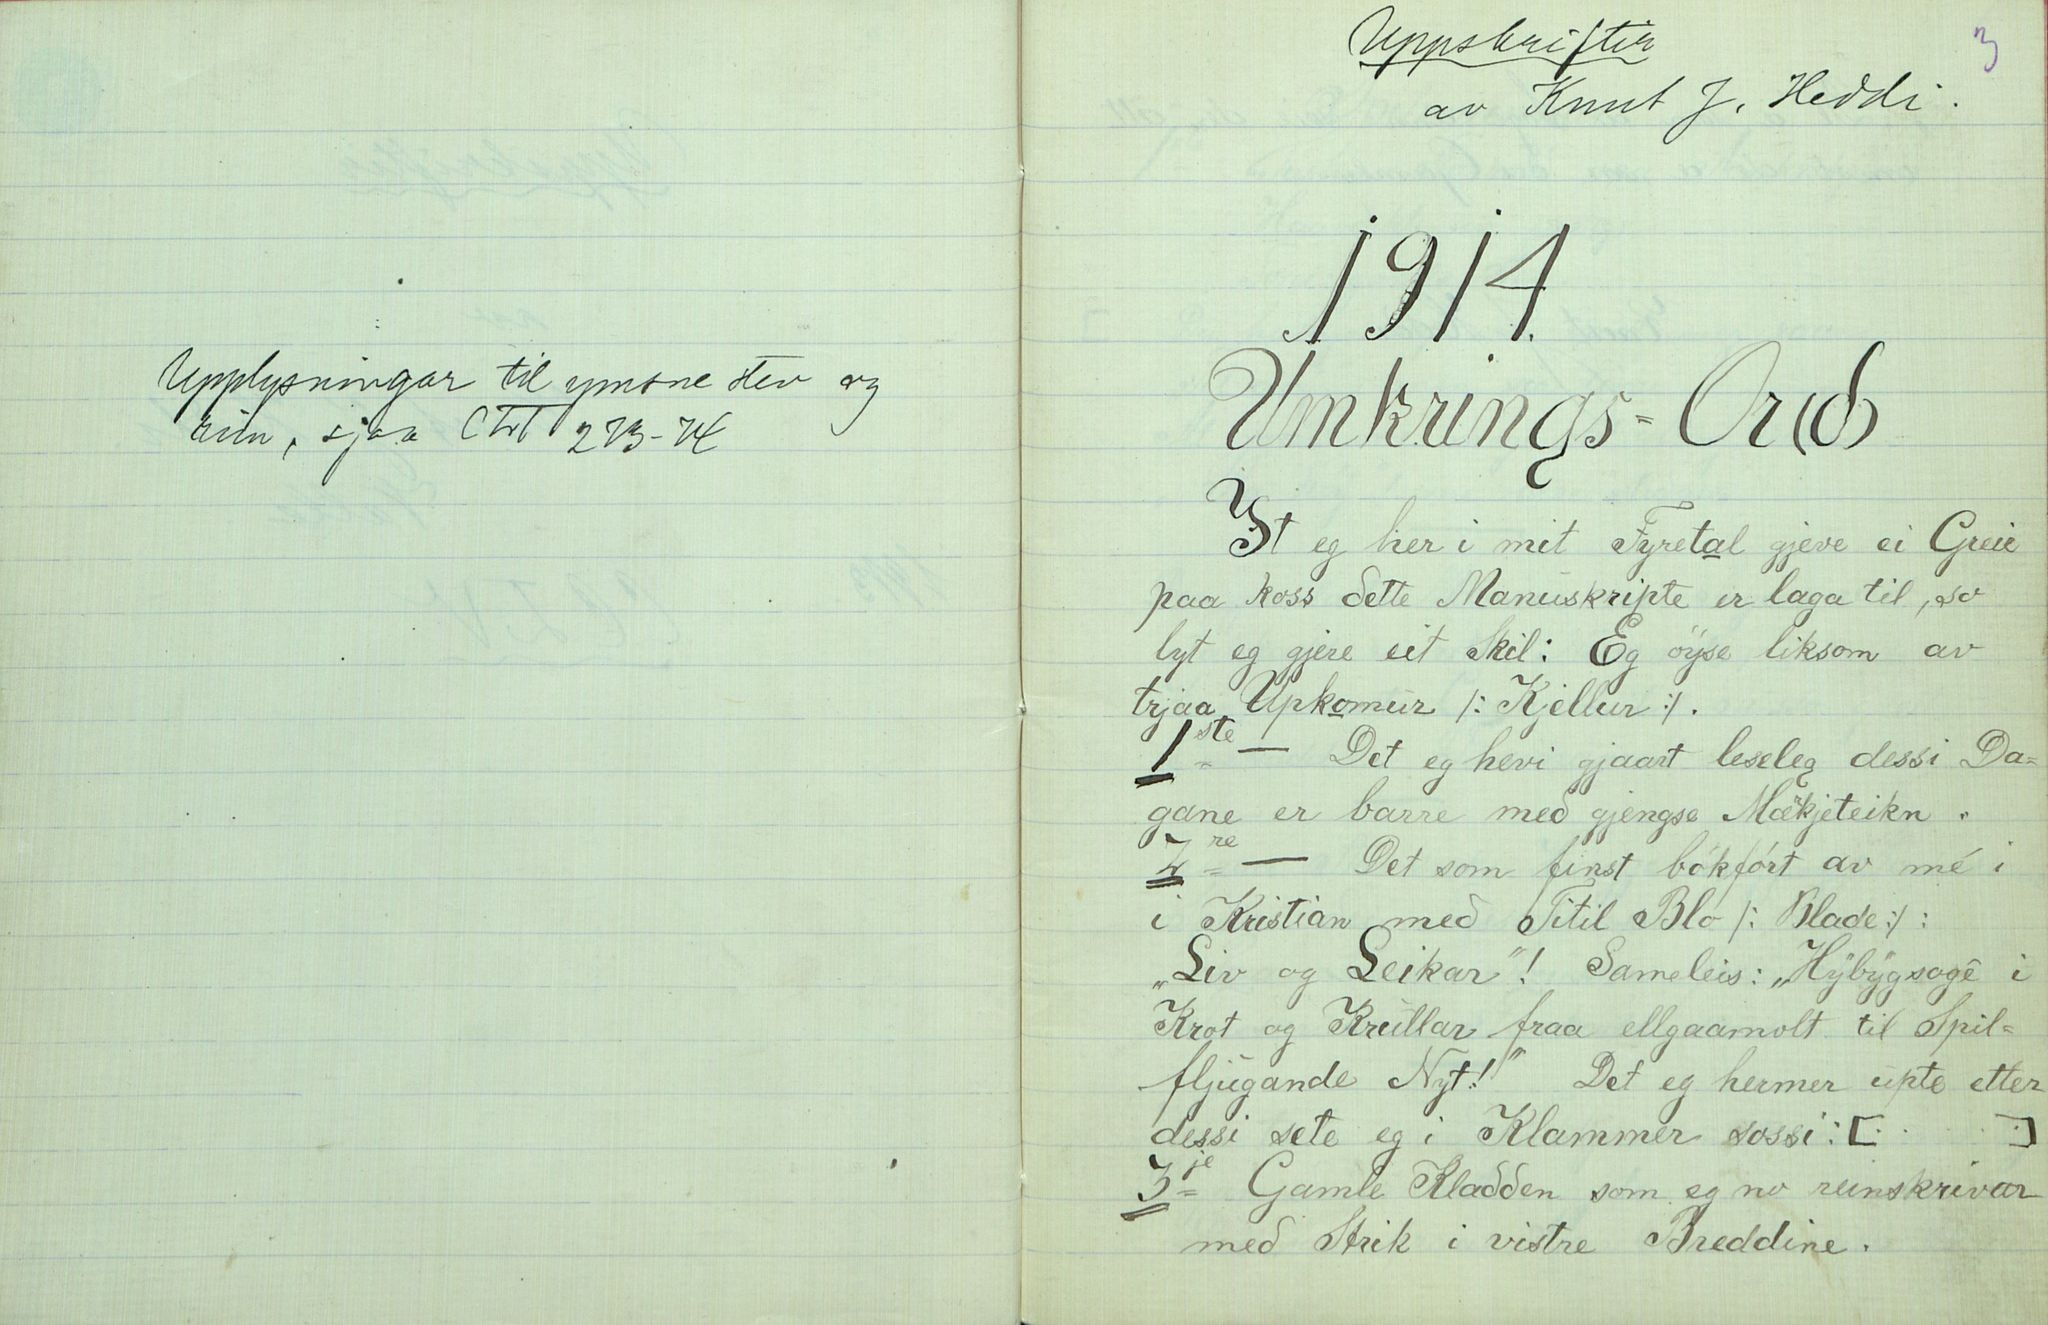 Upplysningar til ymsne stev og
rim, sjaa CLVI 273-74
Uppskrifter
3
av Knut J. Heddi.
1914.
Umkrings-Or(d)
It eg her i mit Fyretal gjeve ei Greie
paa koss dette Manuskripte er laga til, so
lyt eg gjere eit Skil: Eg öyse liksom av
trjaa Upkomur /: Kjellur :/.
1ste — Det eg hevi gjaart leseleg dessi Da=
gane er barre med gjengse Mærkjeteikn.
2re — Det som finst bókfórt av mé i
i Kristian med Titil Blo /: Blade :/:
„Liv og Leikar"! Sameleis: „Hÿbÿgsoge i
Krot og Krullar fraa ellgaamolt til Spil=
fljugande Nyt!" Det eg hermer upte etter
dessi sete eg i Klammer sossi: [: :]
3je Gamle Kladden som eg no reinskrivar
med Strik i vistre Breddine.